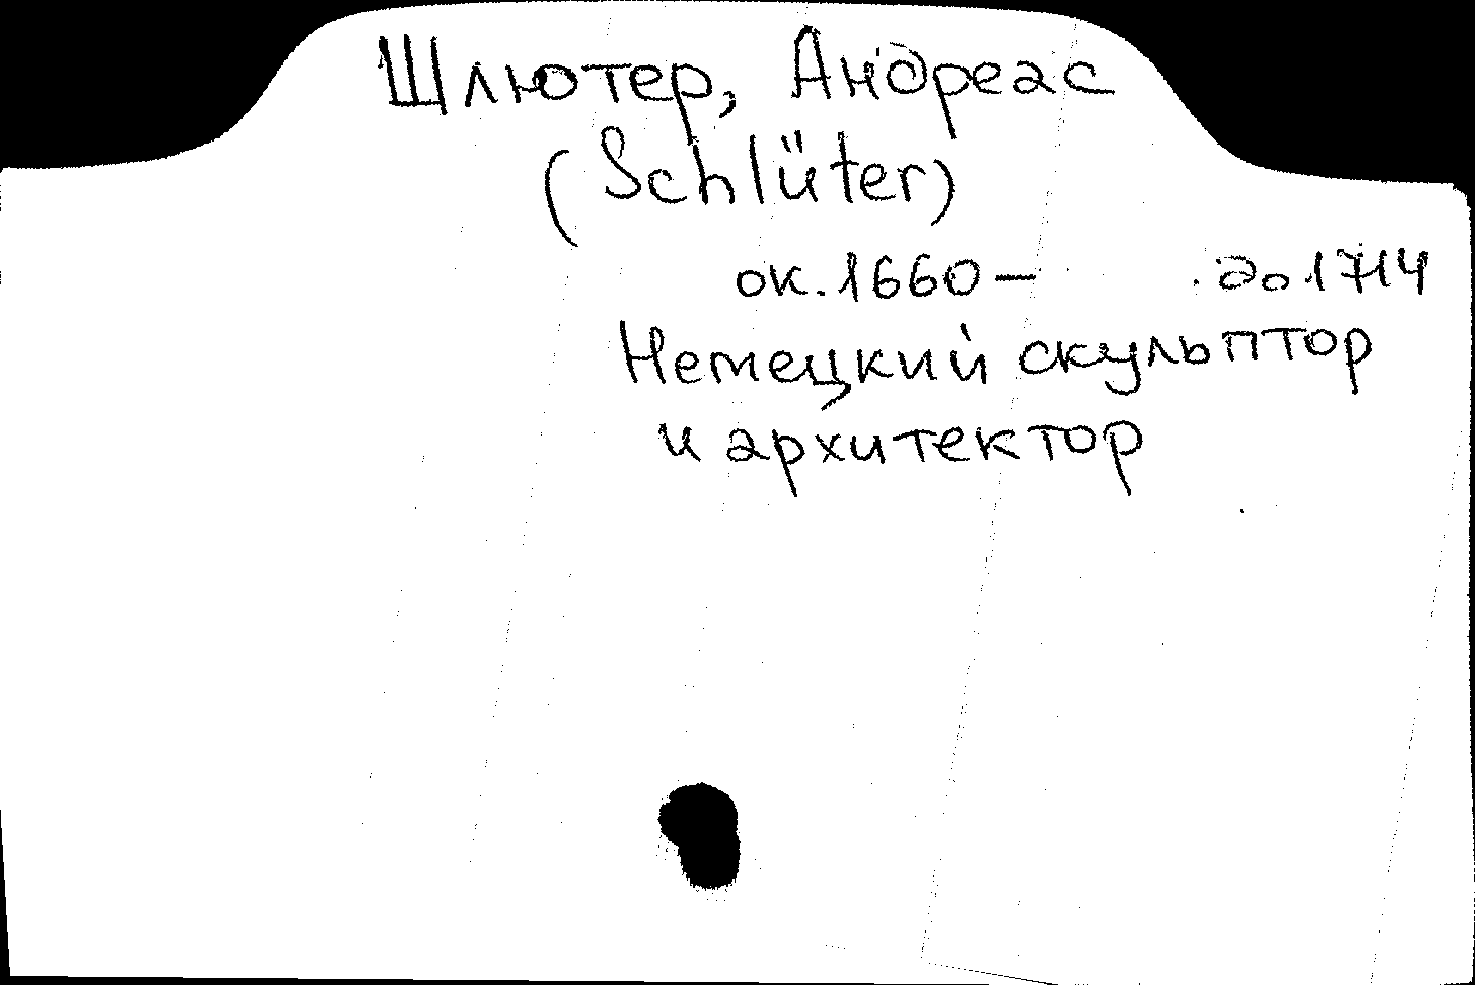 Шлютер, Андреас
(Schlüter)
ок. 1660 — до 1714
Немецкий скульптор
и архитектор